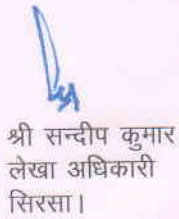 श्री सन्दीप कुमार
लेखा अधिकारी
सिरसा।